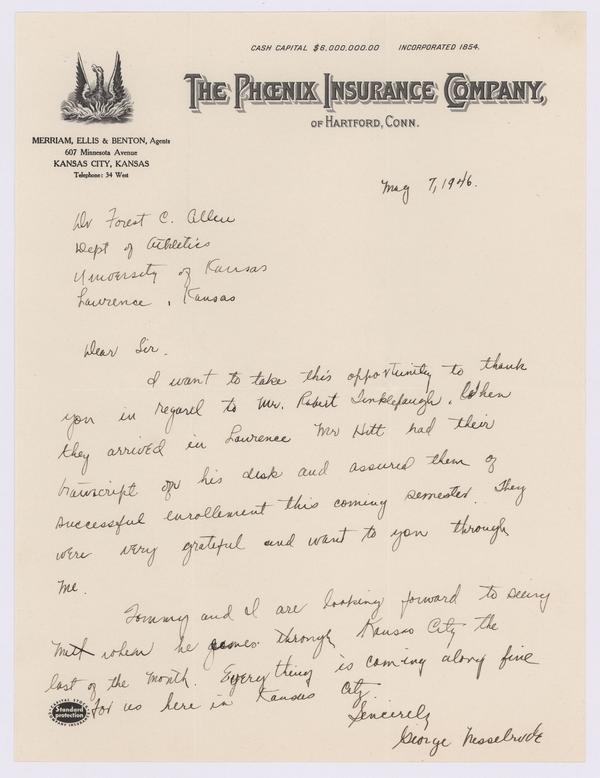 CASH CAPITAL $6,000,000.00 INCORPORATED 1854.
THE PHŒNIX INSURANCE COMPANY,
OF HARTFORD, CONN.
MERRIAM, ELLIS & BENTON, Agents
607 Minnesota Avenue
KANSAS CITY, KANSAS
Telephone: 34 West
May 7, 1946.
Dr Forest C. Allen
Dept of Athletics
University of Kansas
Lawrence, Kansas
Dear Sir.
I want to take this opportunity to thank
you in regard to Mr. Robert Tinklepaugh. When
they arrived in Lawrence Mr Hitt had their
transcript on his disk and assured them of
successful enrollement this coming semester. They
were very grateful and want to you through
me.
Tommy and I are looking forward to seeing
Mitt when he comes through Kansas City the
last of the month. Everything is coming along fine
for us here in Kansas City.
Sincerely
George Nesselrode
CAPITAL STOCK
Standard
protection
COMPANY INSURANCE